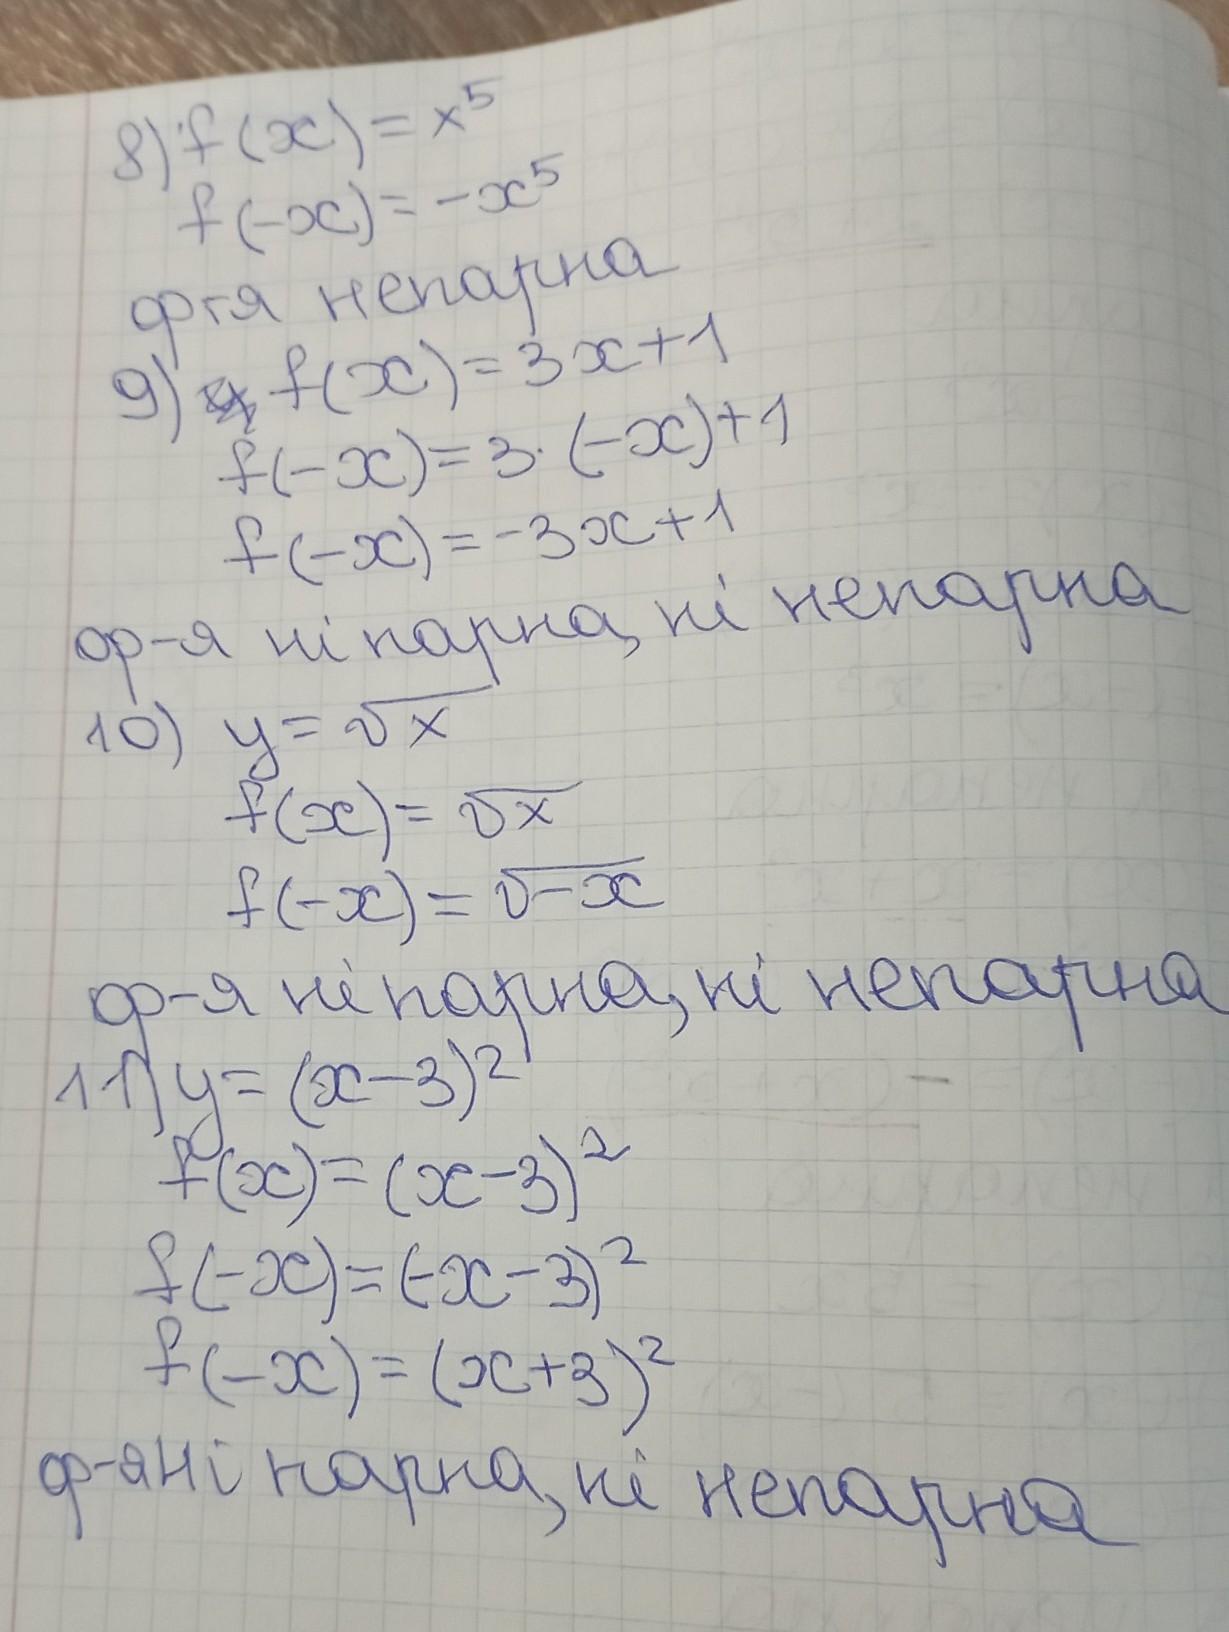 8) f(x) = x⁵
f(-x) = -x⁵
ф-я непарна
9) f(x) = 3x+1
f(-x) = 3·(-x)+1
f(-x) = -3x+1
ф-я ні парна, ні непарна
10) y = √x
f(x) = √x
f(-x) = √-x
ф-я ні парна, ні непарна
11) y = (x-3)²
f(x) = (x-3)²
f(-x) = (-x-3)²
f(-x) = (x+3)²
ф-я ні парна, ні непарна